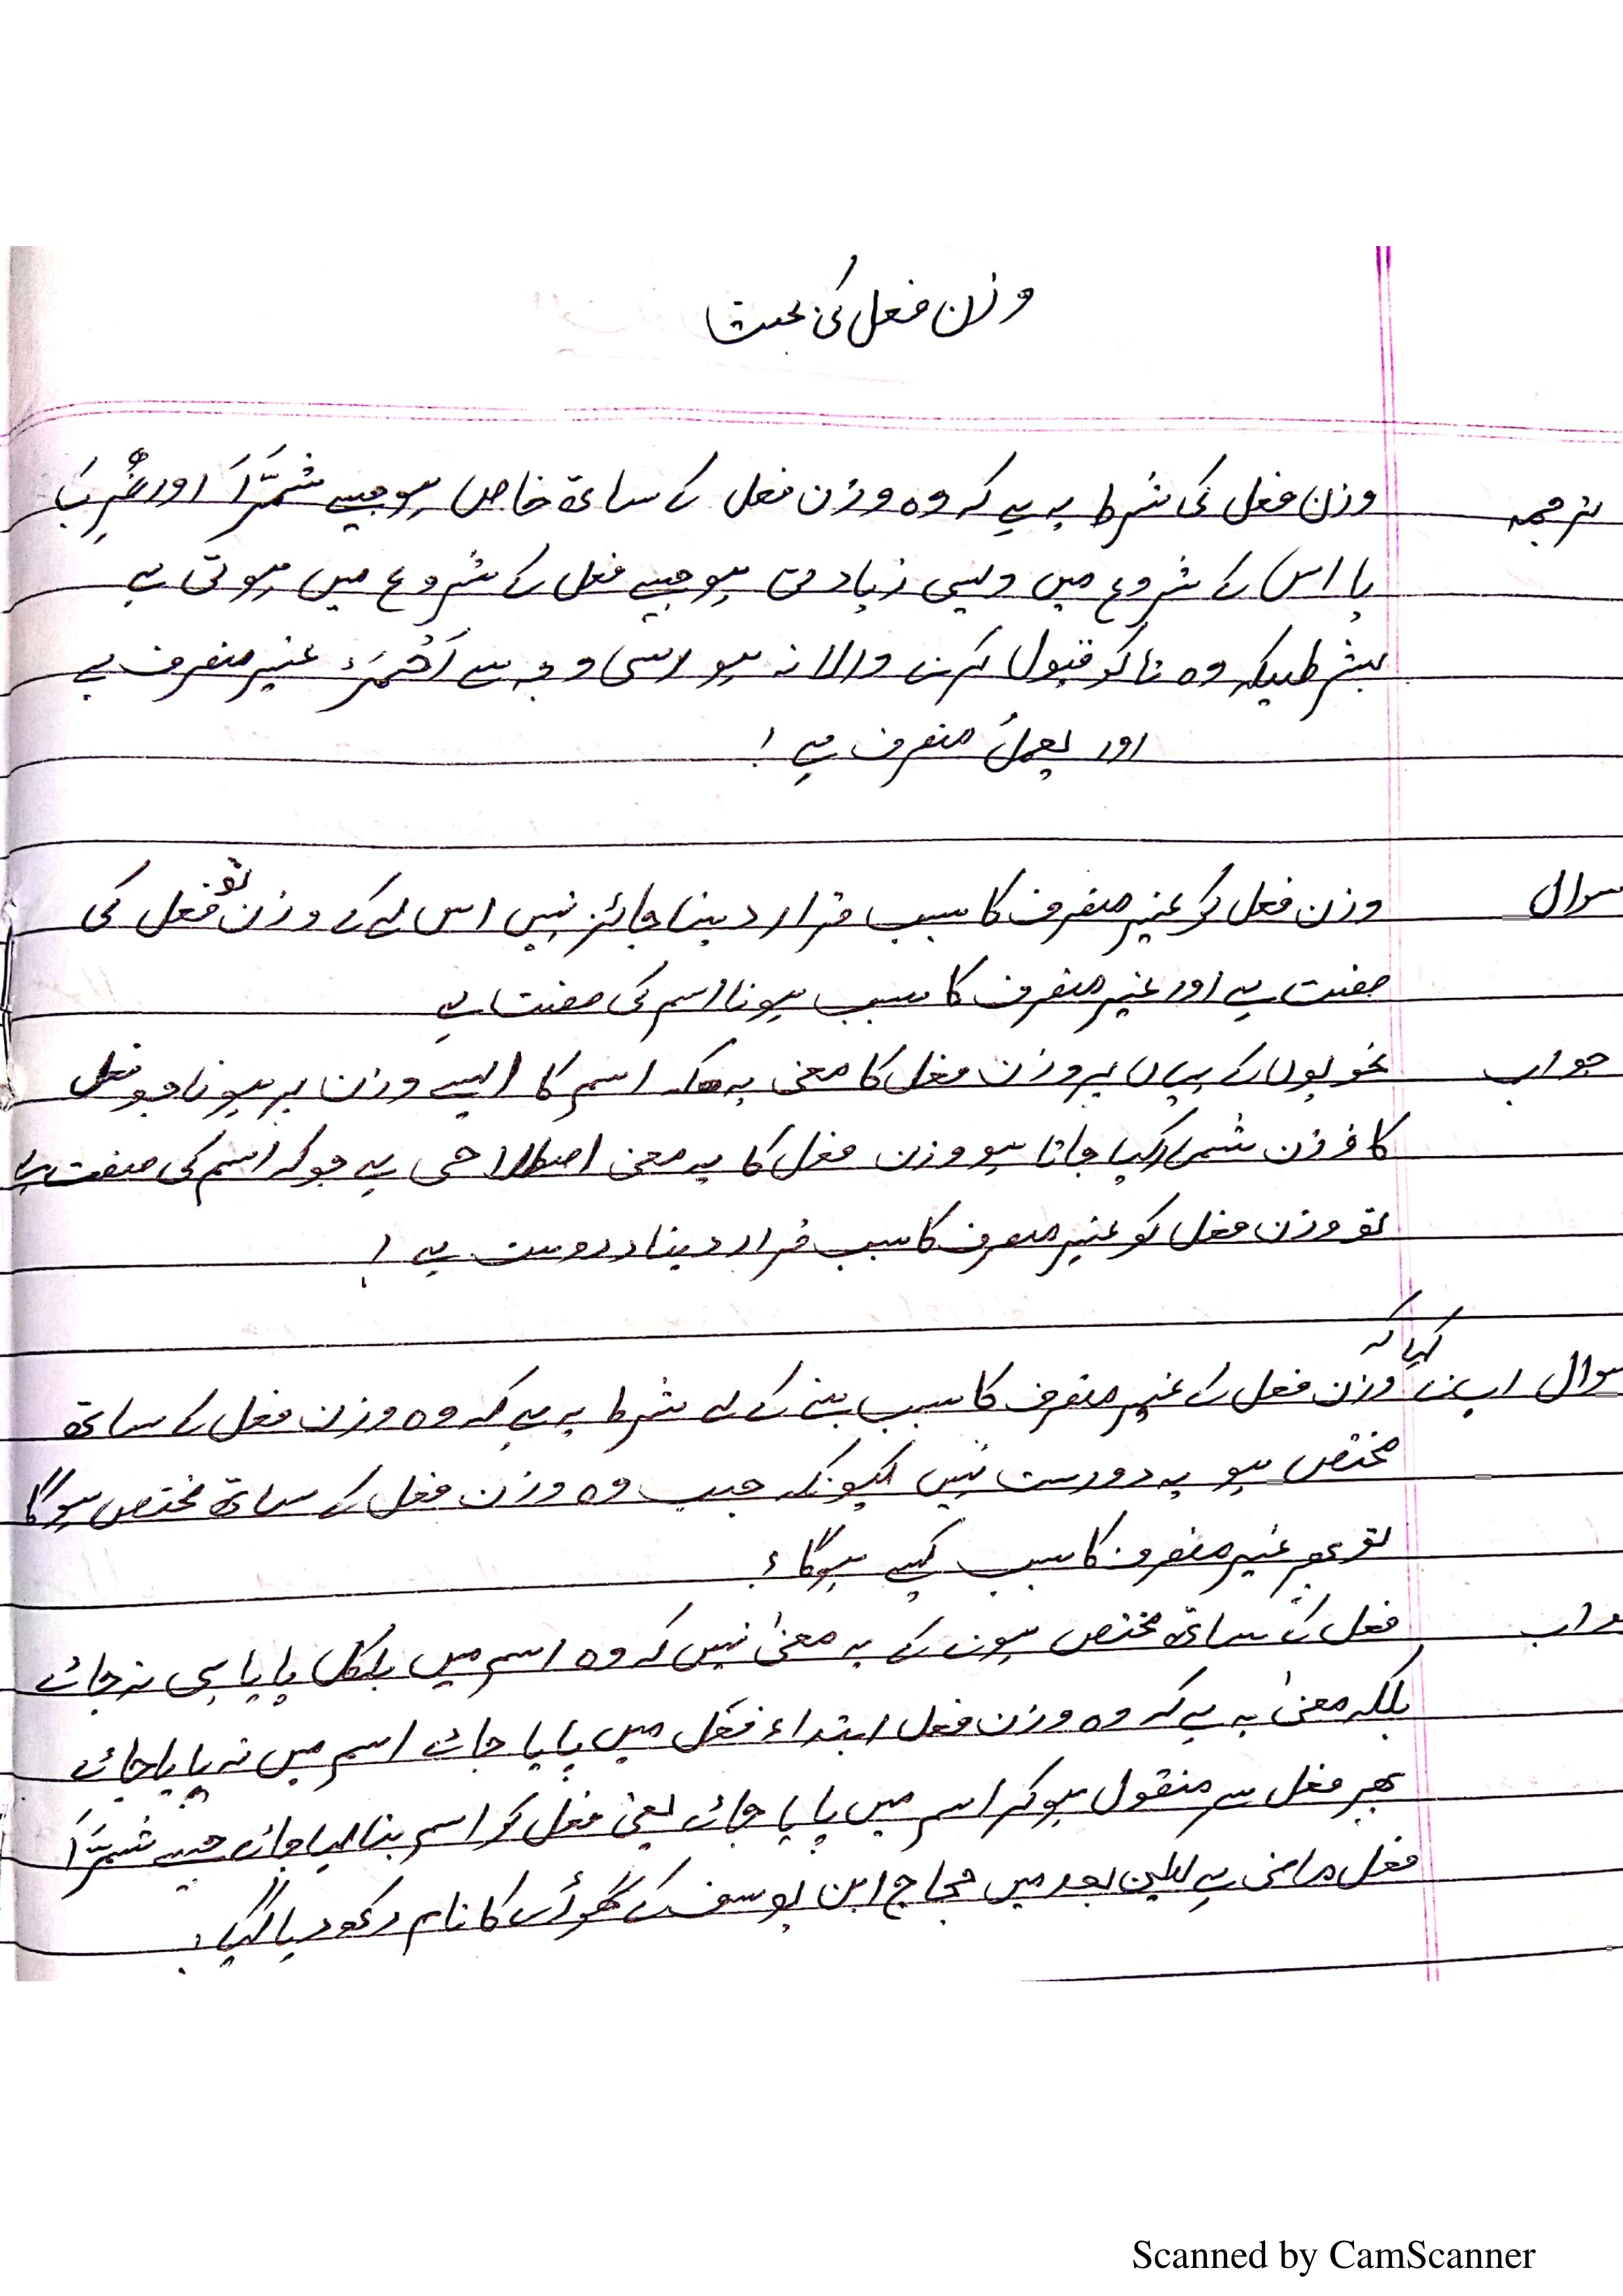 وزن فعل کی بحث
ترجمہ وزن فعل کی شرط یہ ہے کہ وہ وزن فعل کے ساتھ خاص ہو جیسے شَمَّرَ اور ضُرِبَ
یا اس کے شروع میں ویسی زیادتی ہو جیسے فعل کے شروع میں ہوتی ہے
بشرطیکہ وہ تا کو قبول کرنے والا نہ ہو اسی وجہ سے اَحْمَرُ غیر منصرف ہے
اور یعملٌ منصرف ہے !
سوال وزن فعل کو غیر منصرف کا سبب قرار دینا جائز نہیں اس لیے کے وزن تو فعل کی
صفت ہے اور غیر منصرف کا سبب ہونا اسم کی صفت ہے
جواب نحویوں کے یہاں پر وزن فعل کا معنی یہ ہیکہ اسم کا ایسے وزن پر ہونا جو فعل
کا وزن شمار کیا جاتا ہو وزن فعل کا یہ معنی اصطلاحی ہے جو کہ اسم کی صفت ہے
تو وزن فعل کو غیر منصرف کا سبب قرار دینا دروست ہے !
سوال اپنے کہا کہ وزن فعل کے غیر منصرف کا سبب بننے کے لے شرط یہ ہے کہ وہ وزن فعل کے ساتھ
مختص ہو یہ دورست نہیں کیونکہ جب وہ وزن فعل کے ساتھ مختص ہوگا
تو پھر غیر منصرف کا سبب کیسے ہوگا ؟
جواب فعل کے ساتھ مختص ہونے کے یہ معنیٰ نہیں کہ وہ اسم میں بلکل پایا ہی نہ جائے
بلکہ معنیٰ یہ ہے کہ وہ وزن فعل ابتداء فعل میں پایا جائے اسم میں نہ پایا جائے
پھر فعل سے منقول ہوکر اسم میں پایا جائے یعنی فعل کو اسم بنا لیا جائے جیسے شَمَّرَ
فعل ماضی ہے لیکن بعد میں حجاج ابن یوسف کے گھوڑے کا نام رکھ دیا گیا !
Scanned by CamScanner